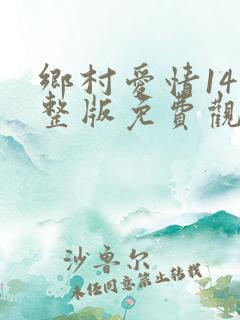 鄉村愛情14
整版免費觀
沙鲁尔
未经同意禁止转载